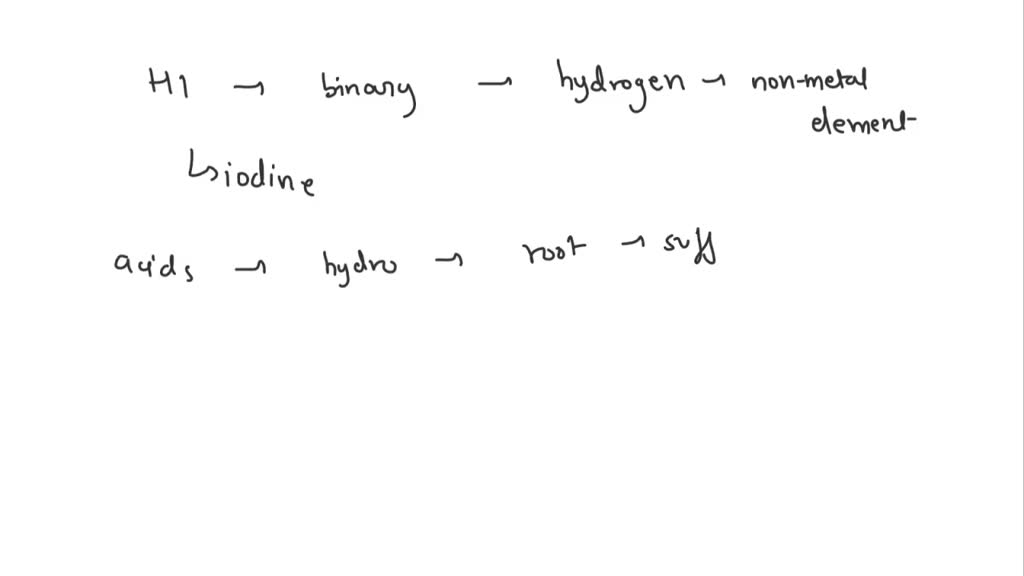 HI → binary → hydrogen → non-metal
element
↳ iodine
acids → hydro → root → suff